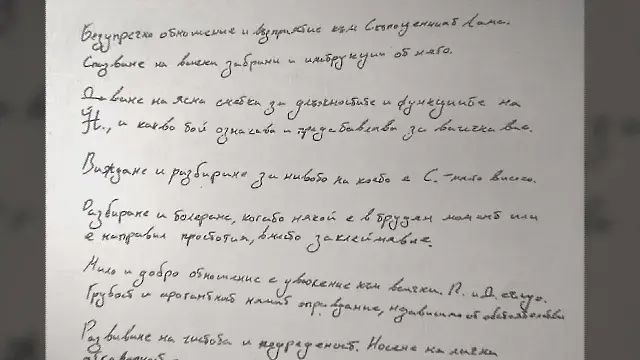 Безупречно отношение и възприятие към Скъпоценният Лама.
Спазване на всички забрани и инструкции от него.
Даване на ясна сметка за длъжностите и функциите на
Й., и какво той означава и представлява за всички вас.
Виждане и разбиране за нивото на което е С. - много високо.
Разбиране и толеранс, когато някой е в труден момент или
е направил простотия, вместо заклеймяване.
Мило и добро отношение с уважение към всички. П. и Д. също.
Грубост и арогантност нямат оправдание, независимо от обстоятелства
Развиване на чистота и подреденост. Носене на лична